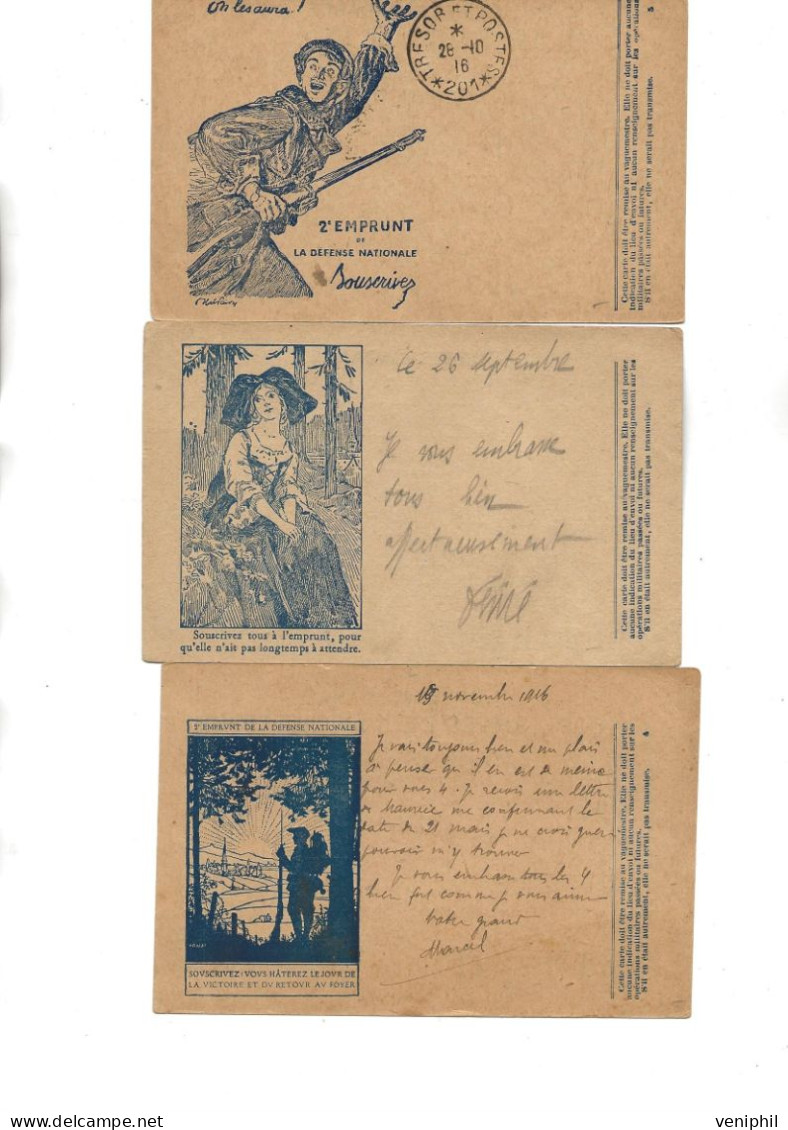 On les aura !
TRESOR ET POSTES
*
28-10
16
*201*
2e EMPRUNT
DE
LA DÉFENSE NATIONALE
Souscrivez
Cette carte doit être remise au vaguemestre. Elle ne doit porter aucune
indication du lieu d'envoi ni aucun renseignement sur les opérations
militaires passées ou futures.
S'il en était autrement, elle ne serait pas transmise.
5
Le 26 septembre
Je vous embrasse
tous bien
affectueusement
Souscrivez tous à l'emprunt, pour
qu'elle n'ait pas longtemps à attendre.
Cette carte doit être remise au vaguemestre. Elle ne doit porter
aucune indication du lieu d'envoi ni aucun renseignement sur les
opérations militaires passées ou futures.
S'il en était autrement, elle ne serait pas transmise.
novembre 1916
2e EMPRVNT DE LA DÉFENSE NATIONALE
Je vais toujours bien et me plais
à penser qu'il en est de même
pour vous 4. Je reçois une lettre
de Maurice me confirmant la
date du 21 mais je ne crois guère
pouvoir m'y trouver
Je vous embrasse tous les 4
bien fort comme je vous aime
votre grand
Marcel
SOVSCRIVEZ: VOVS HÂTEREZ LE JOVR DE
LA VICTOIRE ET DV RETOVR AV FOYER
Cette carte doit être remise au vaguemestre. Elle ne doit porter
aucune indication du lieu d'envoi ni aucun renseignement sur les
opérations militaires passées ou futures.
S'il en était autrement, elle ne serait pas transmise.
4
veniphil